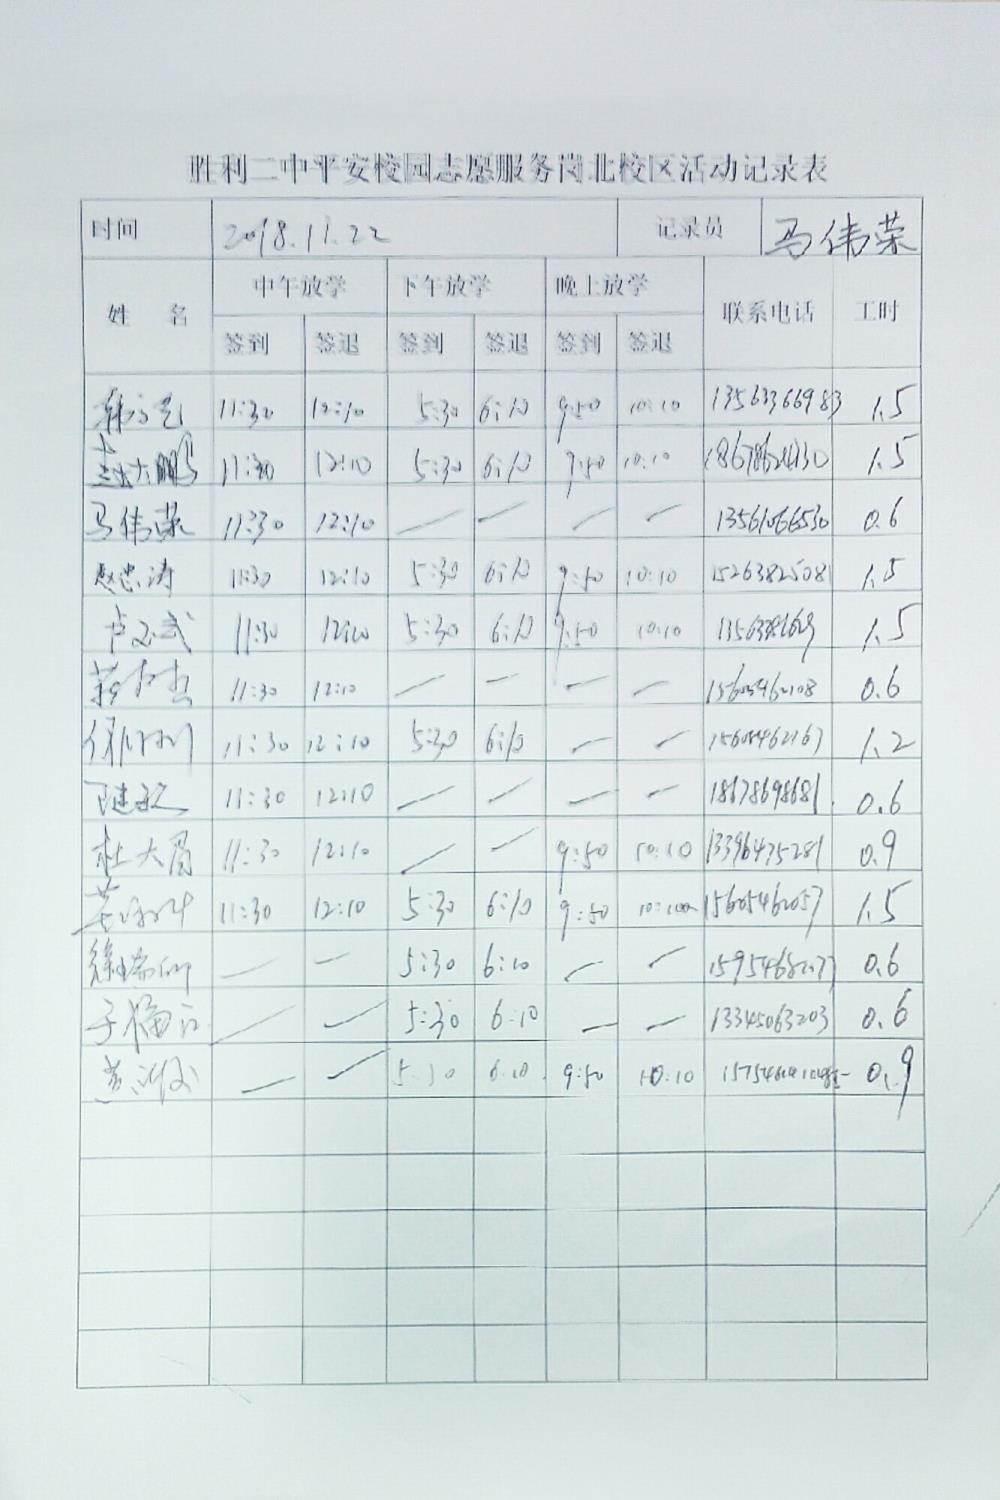 胜利二中平安校园志愿服务岗北校区活动记录表
时间 2018.11.22 记录员 马伟荣
姓 名 中午放学 下午放学 晚上放学 联系电话 工时
签到 签退 签到 签退 签到 签退
11:30 12:10 5:30 6:10 9:50 10:10 13563366983 1.5
大鹏 11:30 12:10 5:30 6:10 9:50 10:10 18678624130 1.5
马伟荣 11:30 12:10 — — — — 13561066530 0.6
赵忠涛 11:30 12:10 5:30 6:10 9:50 10:10 15263825081 1.5
11:30 12:10 5:30 6:10 9:50 10:10 1.5
11:30 12:10 — — — — 15605462108 0.6
11:30 12:10 5:30 6:10 — — 15605462167 1.2
11:30 12:10 — — — — 18678698681 0.6
杜大眉 11:30 12:10 — — 9:50 10:10 13396475281 0.9
11:30 12:10 5:30 6:10 9:50 15605462057 1.5
— — 5:30 6:10 — — 0.6
— — 5:30 6:10 — — 13345063203 0.6
— — 5:30 6:10 9:50 10:10 0.9